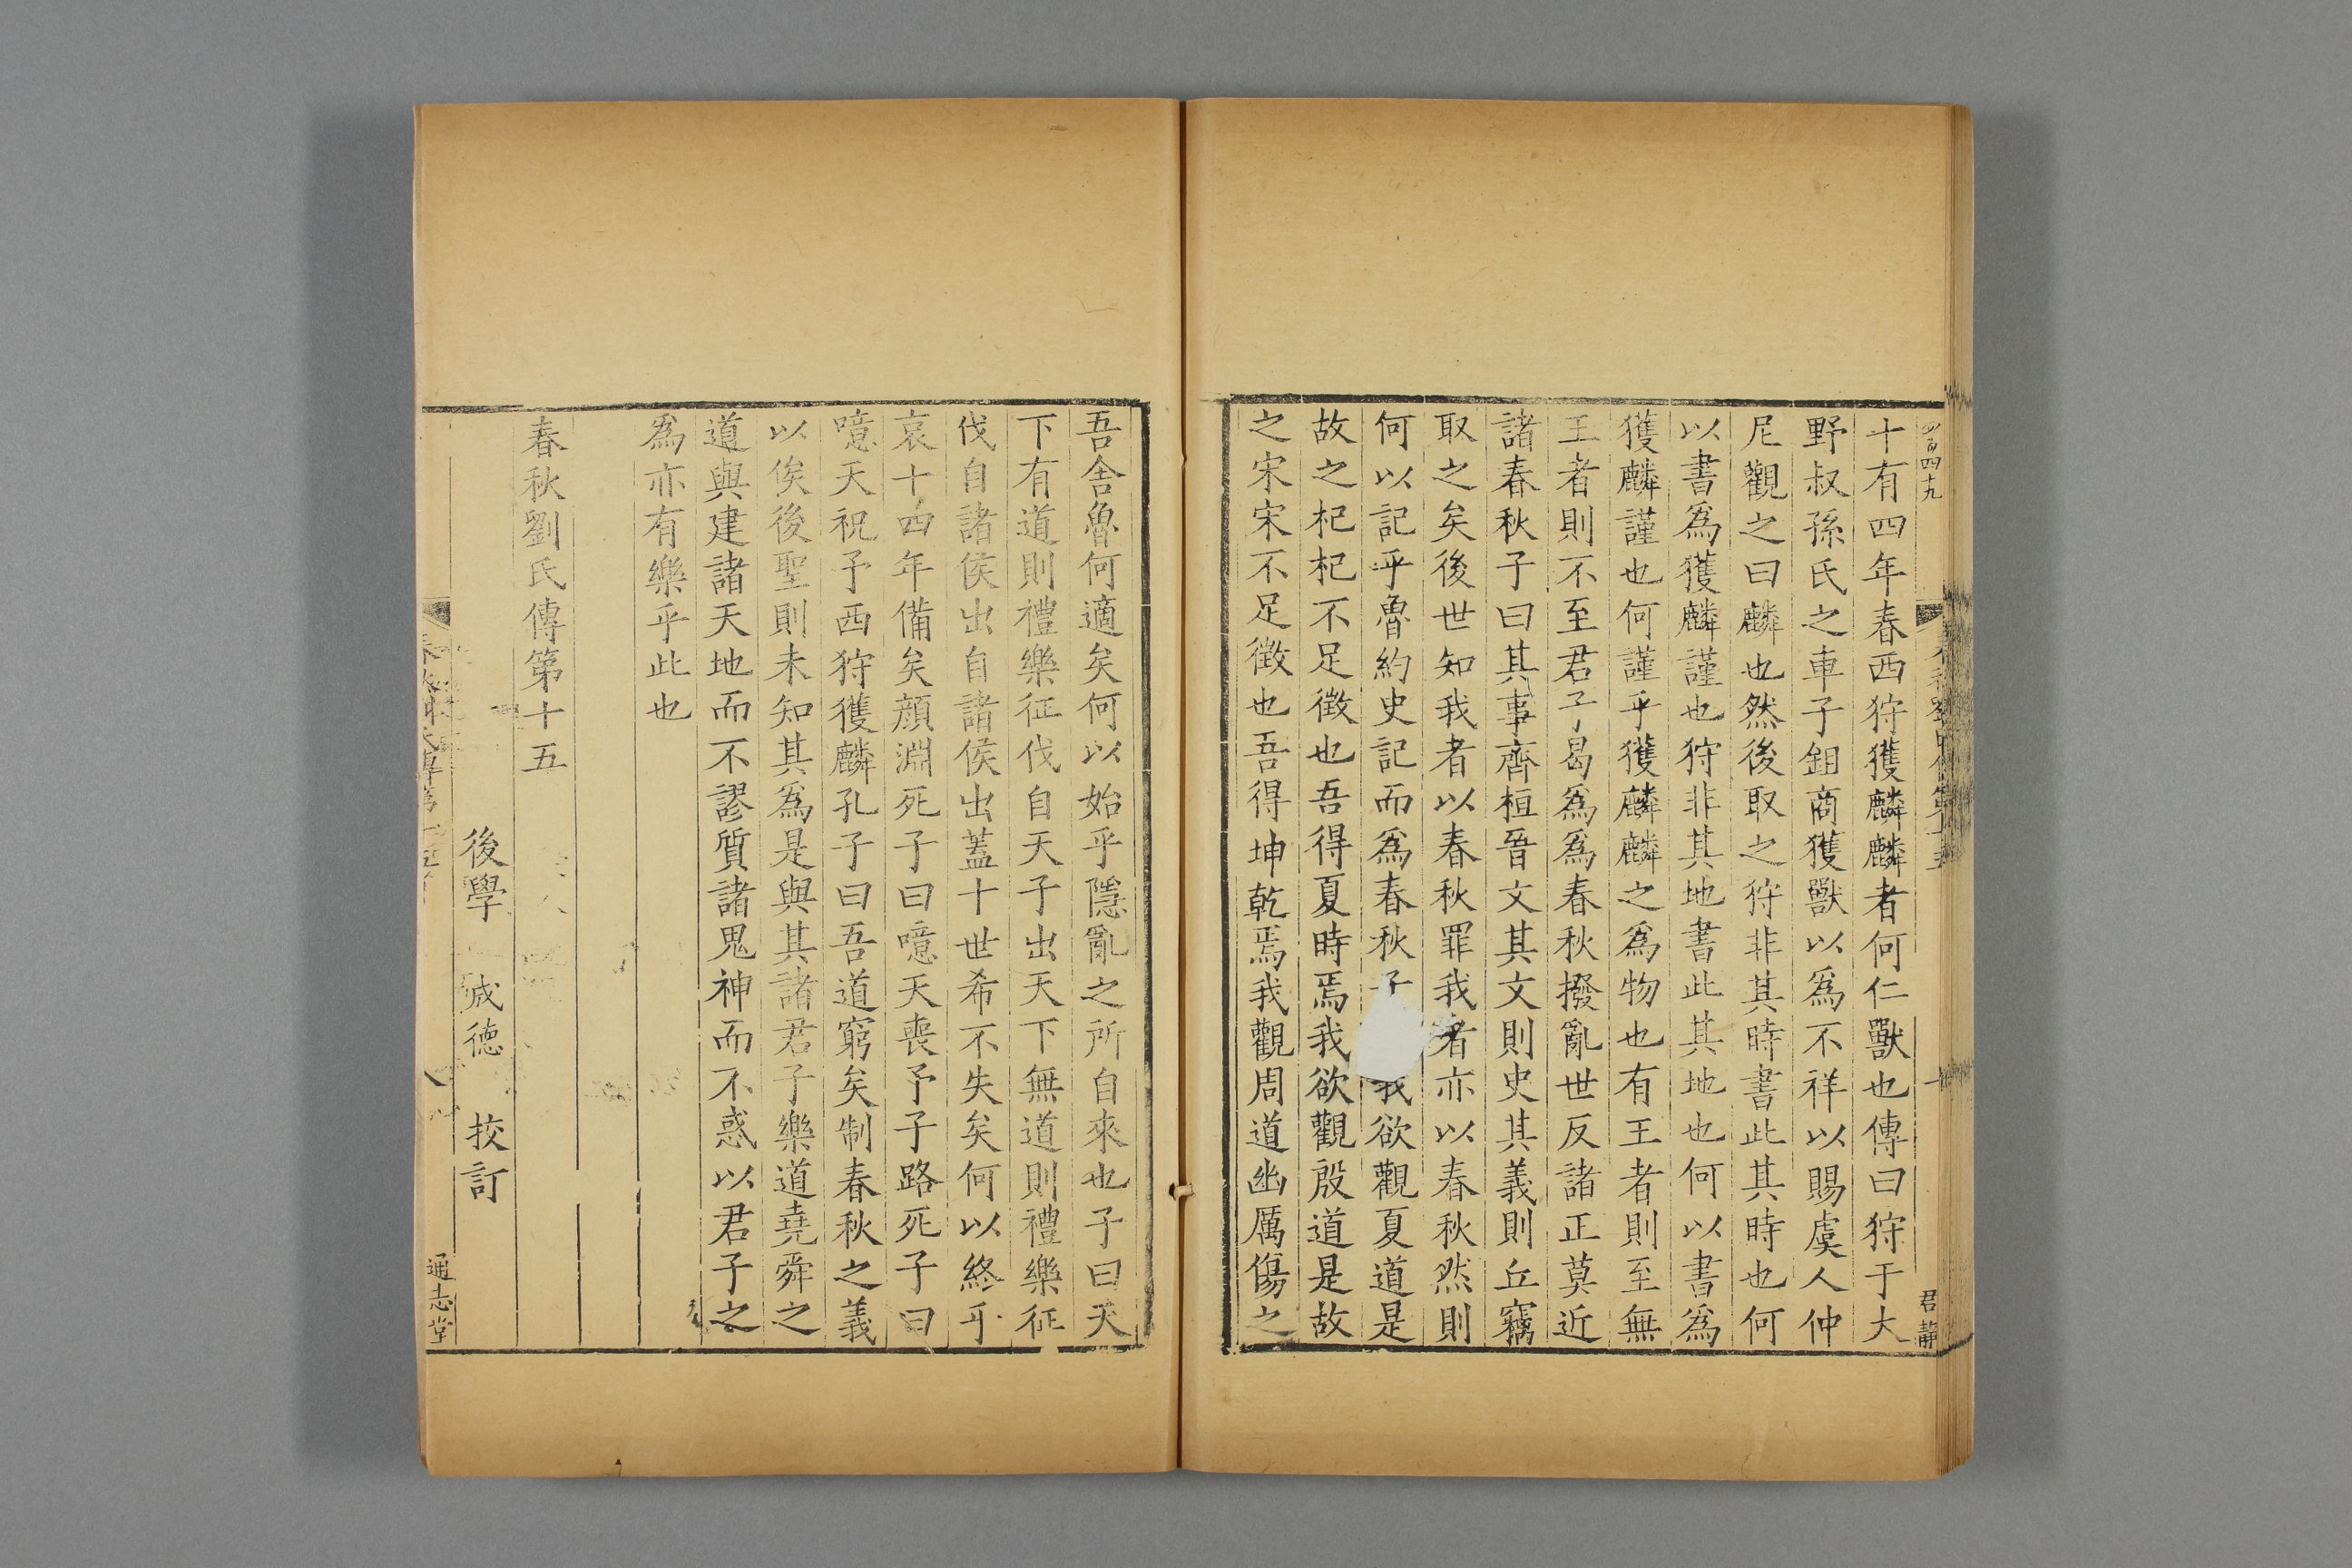 四百四十九
十有四年春西狩獲麟麟者何仁獸也傳曰狩于大
野叔孫氏之車子鉏商獲獸以爲不祥以賜虞人仲
尼觀之曰麟也然後取之狩非其時書此其時也何
以書爲獲麟謹也狩非其地書此其地也何以書爲
獲麟謹也何謹乎獲麟麟之爲物也有王者則至無
王者則不至君子曷爲爲春秋撥亂世反諸正莫近
諸春秋子曰其事齊桓晉文其文則史其義則丘竊
取之矣後世知我者以春秋罪我者亦以春秋然則
何以記乎魯約史記而爲春秋子我欲觀夏道是
故之杞杞不足徵也吾得夏時焉我欲觀殷道是故
之宋宋不足徵也吾得坤乾焉我觀周道幽厲傷之
君靜
吾舍魯何適矣何以始乎隱亂之所自來也子曰天
下有道則禮樂征伐自天子出天下無道則禮樂征
伐自諸侯出自諸侯出蓋十世希不失矣何以終乎
哀十四年備矣顔淵死子曰噫天喪予子路死子曰
噫天祝予西狩獲麟孔子曰吾道窮矣制春秋之義
以俟後聖則未知其爲是與其諸君子樂道堯舜之
道與建諸天地而不謬質諸鬼神而不惑以君子之
爲亦有樂乎此也
春秋劉氏傳第十五
後學 成德 挍訂
通志堂